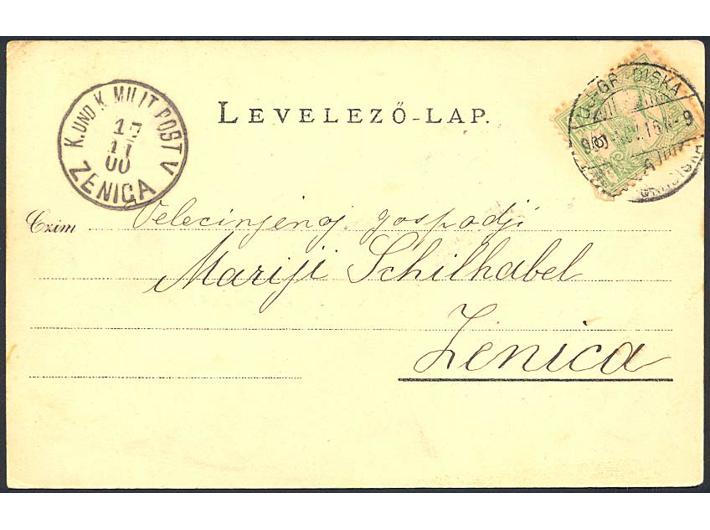 K. UND K. MILIT. POST V
17
11
00
ZENICA
LEVELEZŐ-LAP.
GRADISKA
Czim
Velecinjenoj gospodji
Mariji Schilhabel
Zenica